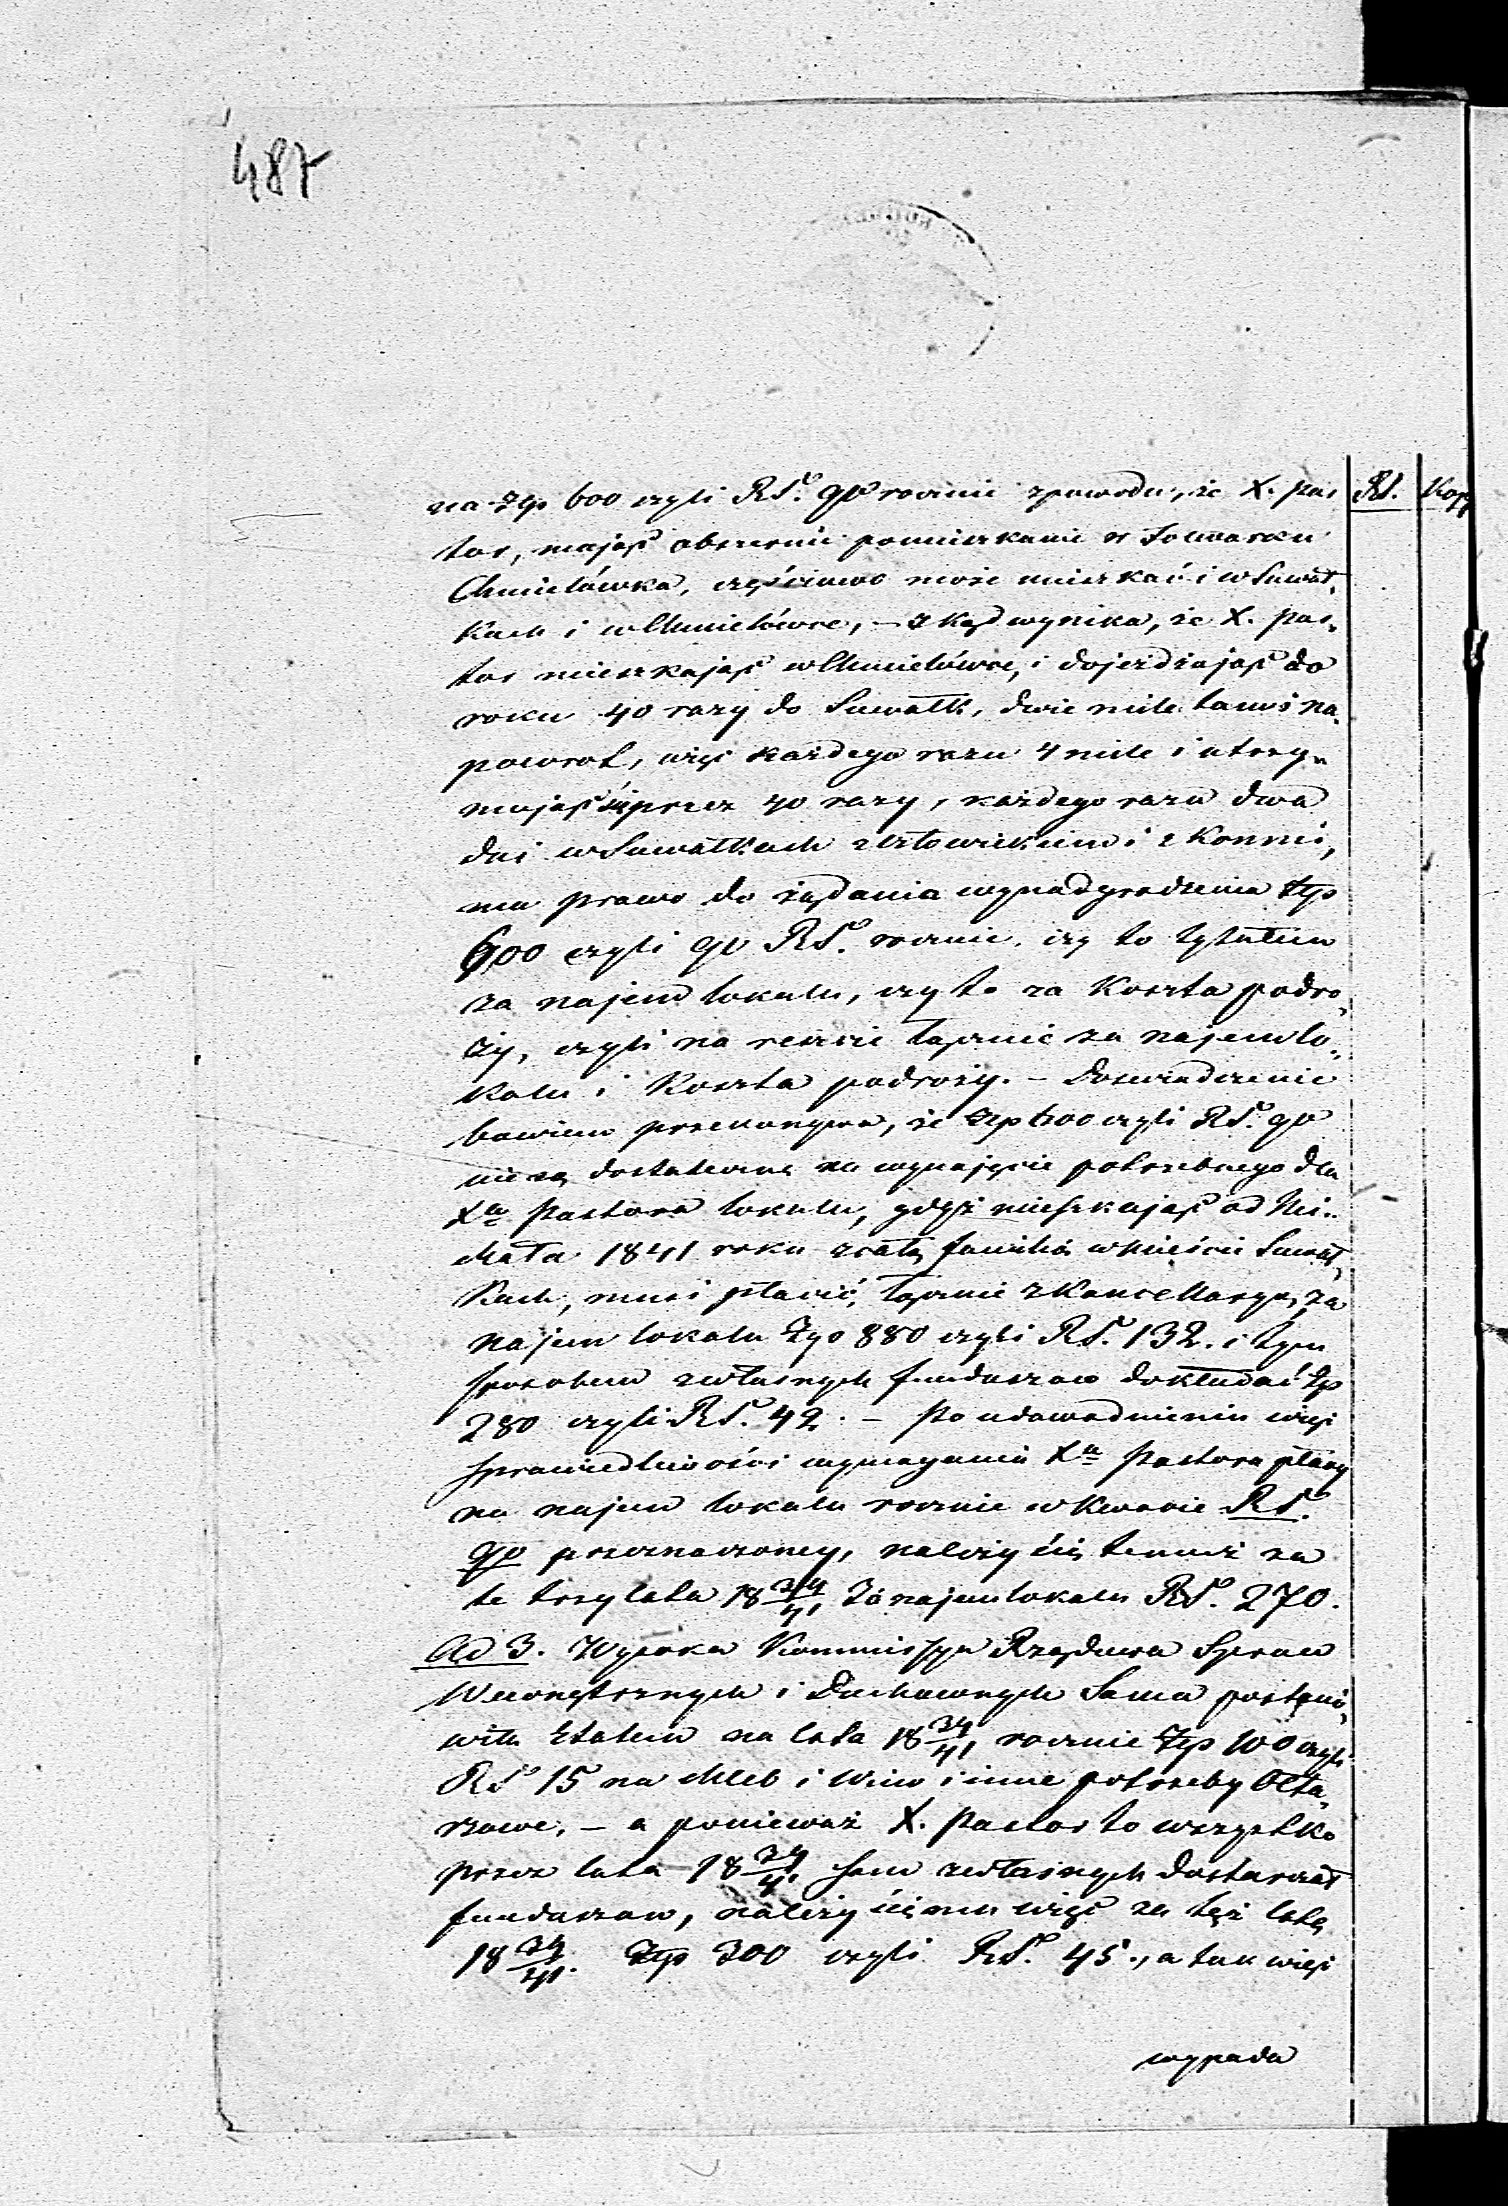 487
RS. Kop
na Złp 600 czyli RS. 90 rocznie zpowodu, że X. Pas-
tor, mając obszernie pomieszkanie w Folwarku
Chmielówka, częściowo może mieszkać i w Suwał-
kach i w Chmielówce, – zkąd wynika, że X. Pas-
tor mieszkając w Chmielówce, i dojeżdżając do
roku 40 razy do Suwałk, dwie mile tam i na-
powrot, więc każdego razu 4 mile i utrzy-
mając się przez 40 razy, każdego razu dwa
dni w Suwałkach z człowiekiem i z konmi,
ma prawo do żądania wynadgrodzenia Złp
600 czyli 90 RS. rocznie, czy to tytułem
za najem lokalu, czy to za koszta podro-
ży, czyli na reszcie łącznie za najem lo-
kalu i koszta podroży. – Doświadczenie
bowiem przekonywa, że Złp 600 czyli RS. 90
nie są dostateczne na wynajęcie potrzebnego dla
Xa Pastora lokalu, gdyż mieszkając od Mi-
chała 1841 roku z całą familią w mieście Suwał-
kach, musi płacić, łącznie z Kancellaryą, za
najem lokalu Złp 880 czyli RS. 132. i tym
sposobem z własnych funduszow dokładać Złp
280 czyli RS. 42. – Po udowodnieniu więc
sprawiedliwości wymagania Xa Pastora płacy
na najem lokalu rocznie w kwocie RS.
90 przeznaczoney, należy się temuż za
te trzy lata 18 39/41 za najem lokalu RS. 270.
Ad 3. Wysoka Kommissya Rządowa Spraw
Wewnętrznych i Duchownych Sama postano-
wiła Etatem na lata 18 39/41 rocznie Złp 100 czyli
RS 15 na Chleb i Wino i inne potrzeby Ołta-
rzowe, – a ponieważ X. Pastor to wszystko
przez lata 18 39/41 sam z własnych dostarczał
funduszow, należy się mu więc za też lata
18 39/41. Złp 300 czyli RS. 45., a tak więc
wypada